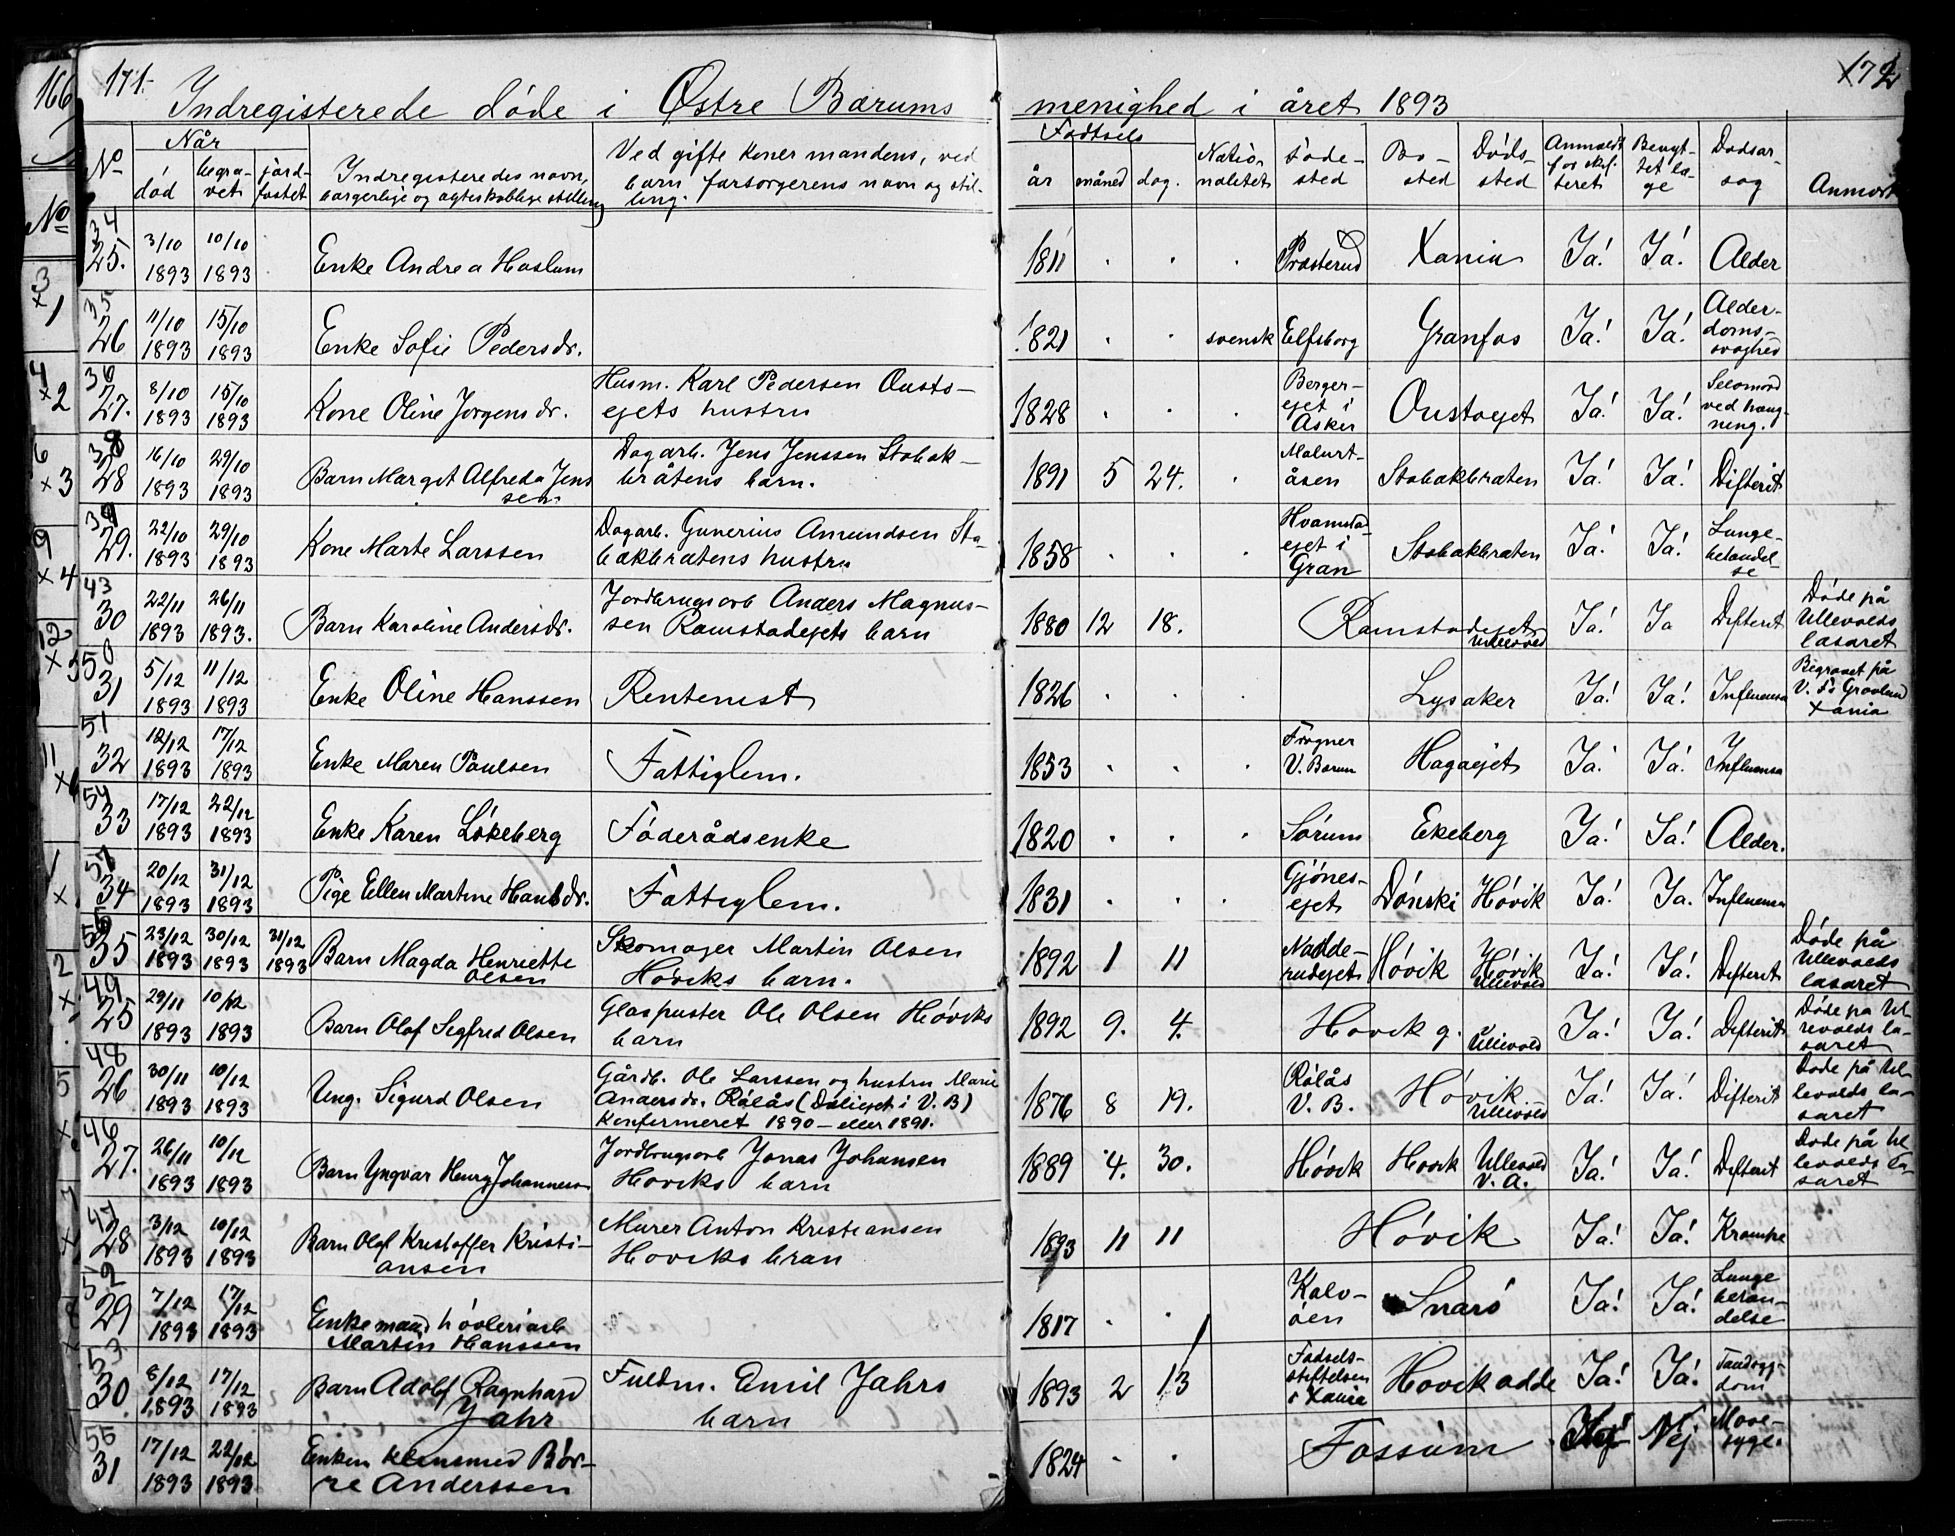 166 171. Indregisterede døde i Østre Bærums menighed i året 1893 172
No Når Indregisteredes navn, borgerlige og ægteskablige stilling Ved gifte koner mandens, ved barn forsørgerens navn og stilling. Fødsels Natio- nalitet Føde- sted Bo- sted Døds- sted Anmeldt for skif- teret Benyt- tet læ- ge Dødsår- sag Anmerk
død begra- vet jord- fæstet år måned dag.
34 25. 3/10 1893 10/10 1893 Enke Andrea Haslum 1811 Præsterud Xania Ja! Ja! Alder
35 26 11/10 1893 15/10 1893 Enke Sofie Pedersdr. 1821 svensk Elfsborg Granfos Ja! Ja! Alder- doms- svaghed
36 27. 8/10 1893 15/10 1893 Kone Oline Jørgensdr. Husm. Karl Pedersen Ousts- ejets hustru 1828 Berger- ejet i Asker Oustøejet Ja! Ja! Selvmord ved hæng- ning.
38 28 16/10 1893 29/10 1893 Barn Margit Alfreda Jens sen Dagarb. Jens Jenssen Stabæk- bråtens barn. 1891 5 24. Malurt- åsen Stabækbråten Ja! Ja! Difterit
39 29. 22/10 1893 29/10 1893 Kone Marte Larssen Dagarb. Gunerius Amundsen Sta- bækbråtens hustru 1858 Hvamsta- ejet i Gran Stabækbraten Ja! Ja! Lunge- betændel- se
43 30 22/11 1893 26/11 1893. Barn Karoline Andersdr. Jordbrugsarb Anders Magnus- sen Ramstadejets barn 1880 12 18. Ramstadejet Ullevold Ja! Ja Difterit Døde på Ullevolds lasaret
50 31 5/12 1893 11/12 1893 Enke Oline Hanssen Rentenist 1826 Lysaker Ja! Ja! Influensa Begravet på V. Fs Gravlund Xania
51 32 12/12 1893 17/12 1893 Enke Maren Paulsen Fattiglem. 1853 Frogner V. Bærum Hagaejet Ja! Ja! Influensa
54 33 17/12 1893 22/12 1893 Enke Karen Løkeberg Føderådsenke 1820 Sørum Ekeberg Ja! Ja! Alder.
57 34 20/12 1893 31/12 1893 Pige Ellen Martine Hansdr. Fattiglem. 1831 Gjønes- ejet Dønski Høvik Ja! Ja. Influensa
56 35 23/12 1893 30/12 1893 31/12 1893 Barn Magda Henriette Olsen Skomager Martin Olsen Høviks barn. 1892 1 11 Nadde- rudejet Høvik Høvik Ullevold Ja! Ja! Difterit Døde på Ullevolds lasaret
49 25 29/11 1893 10/12 1893 Barn Olaf Sigfred Olsen Glaspuster Ole Olsen Høviks barn 1892 9. 4. Høvik g. Ullevold Ja! Ja! Difterit Døde på Ul- levolds la- saret
48 26 30/11 1893 10/12 1893 Ung. Sigurd Olsen Gårdb. Ole Larssen og hustru Marie Andersdr. Rølås (Daliejet i V. B) Konfirmeret 1890 - eller 1891. 1876 8 19. Rølås V. B. Høvik Ullevold Ja! Ja! Difterit Døde på Ul- levolds la- saret
46 27. 26/11 1893 10/12 1893 Barn Yngvar Henry Johannesen Jordbrugsarb Jonas Johansen Høviks barn 1889 4. 30. Høvik Høvik Ullevold V. A. Ja! Ja! Difterit Døde på Ul- levolds la- saret
47 28 3/12 1893 10/12 1893 Barn Olaf Kristoffer Kristi- ansen Murer Anton Kristiansen Høviks bran 1893 11 11 Høvik Ja! Ja! Krampe
52 29 7/12 1893 17/12 1893 Enkemand, høvleriarb Martin Hanssen 1817 Kalv- øen Snarø Ja! Ja! Lunge betæn- delse
53 30. 8/12 1893 17/12 1893 Barn Adolf Ragnhard Jahr Fuldm. Emil Jahrs barn 1893 2 13 Fødsels- stiftelsen i Xania Høvikodde Ja! Ja! Tandsyg- dom
55 31 17/12 1893 22/12 1893 Enkem klensmed Bør- re Anderssen 1824 Fossum Nej Nej Mave- syge.